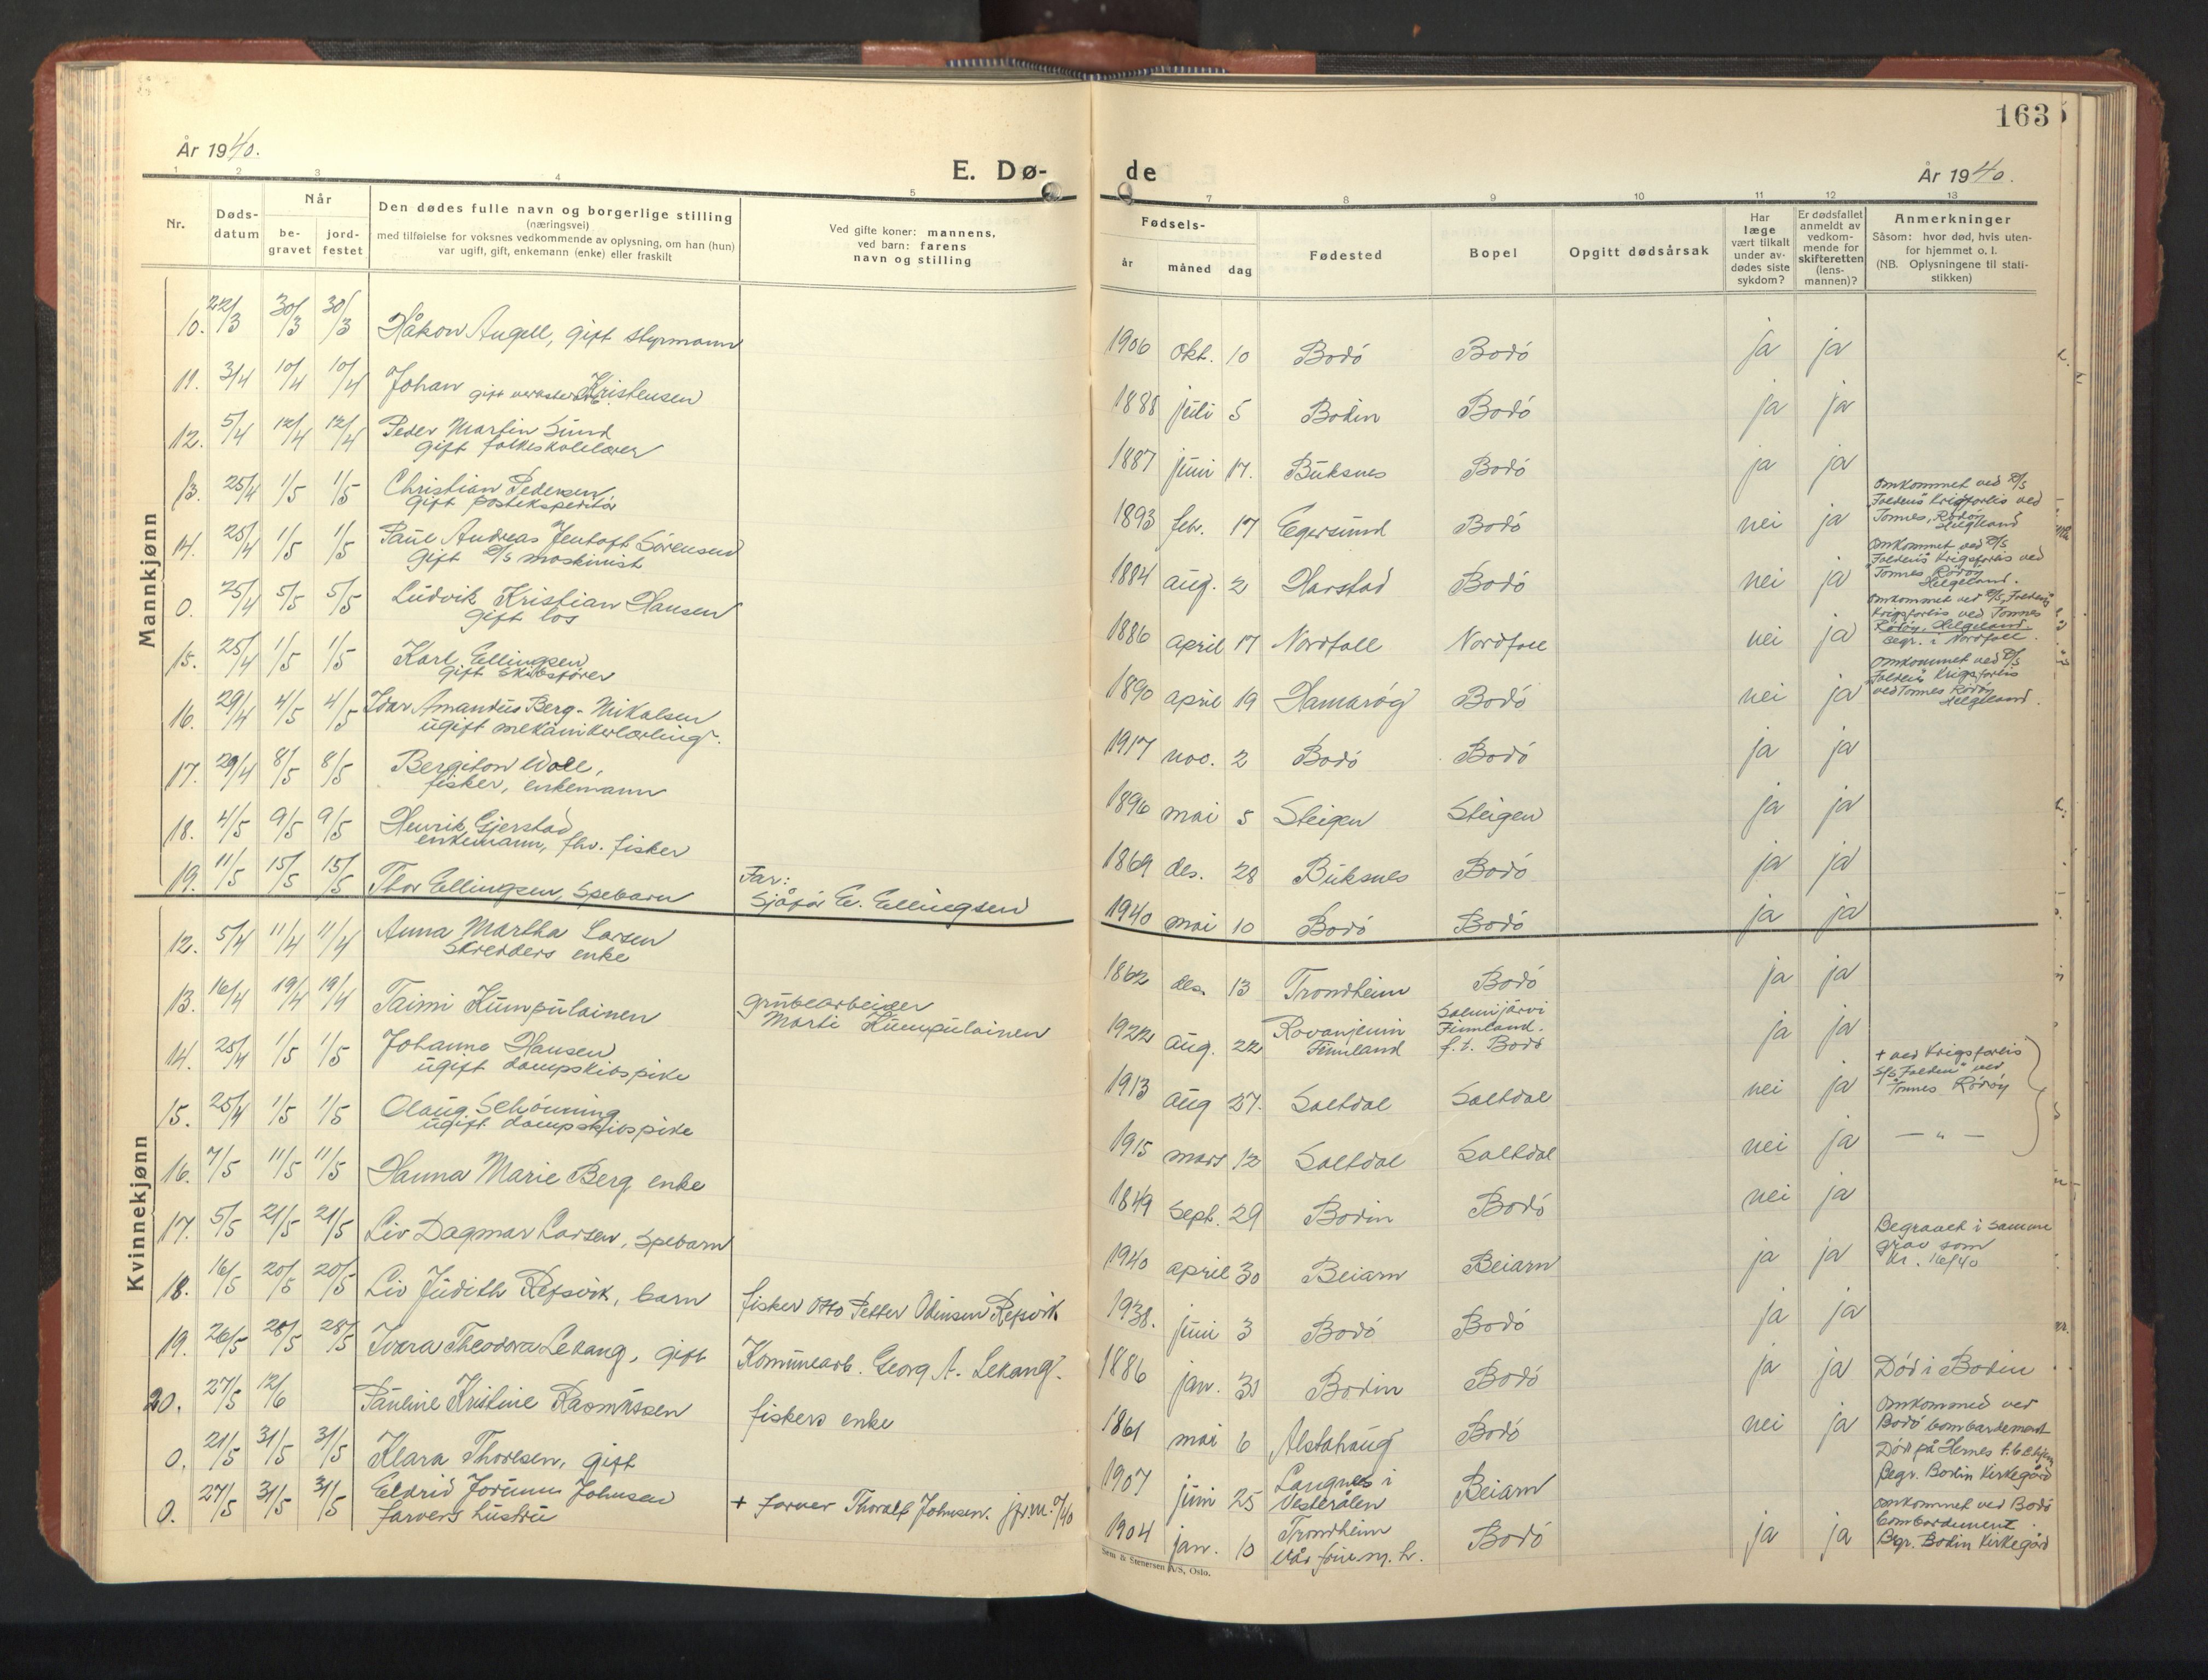 163
År 1940.
E. Dø-
de
År 1940.
1 2 3 4 5
7 8 9 10 11 12 13
Nr.
Døds-
datum
Når
be-
gravet
jord-
festet
Den dødes fulle navn og borgerlige stilling
(næringsvei)
med tilføielse for voksnes vedkommende av oplysning, om han (hun)
var ugift, gift, enkemann (enke) eller fraskilt
Ved gifte koner: mannens,
ved barn: farens
navn og stilling
Fødsels-
år
måned
dag
Fødested
Bopel
Opgitt dødsårsak
Har
læge
vært tilkalt
under av-
dødes siste
sykdom?
Er dødsfallet
anmeldt av
vedkom-
mende for
skifteretten
(lens-
mannen)?
Anmerkninger
Såsom: hvor død, hvis uten-
for hjemmet o. l.
(NB. Oplysningene til stati-
stikken)
Mannkjønn
10. 22/3 30/3 30/3 Håkon Angell, gift styrmann 1906 okt. 10 Bodö Bodö ja ja
11. 3/4 10/4 10/4 Johan Kristensen
gift
1888 juli 5 Bodin Bodö ja ja
12. 5/4 12/4 12/4 Peder Martin Sund
gift folkeskolelærer
1887 juni 17. Buksnes Bodö ja ja
13. 25/4 1/5 1/5 Christian Pedersen
gift postekspeditör
1893 febr. 17 Egersund Bodö nei ja
Omkommet ved D/S
"Foldens" krigsforlis ved
Tonnes, Rödöy
Helgeland
14. 25/4 1/5 1/5 Paul Andreas Jentoft Sörensen
gift D/S maskinist
1884 aug. 2 Harstad Bodö nei ja
Omkommet ved D/S
"Foldens" Krigsforlis ved
Tonnes Rödöy
Helgeland.
0. 25/4 5/5 5/5 Ludvik Kristian Hansen
gift los
1886 april 17 Nordfoll Nordfoll nei ja
Omkommet ved D/S "Foldens"
Krigsforlis ved Tonnes
Rödöy, Helgeland.
Begr. i Nordfoll.
15. 25/4 1/5 1/5 Karl Ellingsen
gift skibsförer
1890 april 19 Hamaröy Bodö nei ja
Omkommet ved D/S
"Foldens" Krigsforlis
ved Tonnes Rödöy
Helgeland.
16. 29/4 4/5 4/5 Idar Amandus Berg-Mikalsen
ugift mekanikerlærling.
1917 nov. 2 Bodö Bodö ja ja
17. 29/4 8/5 8/5 Bergiton Woll,
fisker, enkemann
1896 mai 5 Steigen Steigen ja ja
18. 4/5 9/5 9/5 Henrik Gjerstad
enkemann, fhv. fisker
1869 des. 28 Buksnes Bodö ja ja
19. 11/5 15/5 15/5 Thor Ellingsen, spebarn
Far:
Sjåför E. Ellingsen
1940 mai 10 Bodö Bodö ja ja
Kvinnekjønn
12. 5/4 11/4 11/4 Anna Martha Larsen
Skredders enke
1862 des. 13 Trondheim Bodö ja ja
13. 16/4 19/4 19/4 Taimi Kumpulainen
grubearbeider
Marti Kumpulainen
1922 aug. 22 Rovanjemi
Finnland
Salmijärvi
Finnland.
f.t. Bodö
ja ja
14. 25/4 1/5 1/5 Johanna Hansen
ugift dampskibspike
1913 aug 27. Saltdal Saltdal nei ja
+ ved Krigsforlis
S/S "Folden" ved
Tonnes Rödöy
15. 25/4 1/5 1/5 Olaug Schönning
ugift dampskibspike
1915 mars 12 Saltdal Saltdal nei ja — " —
16. 7/5 11/5 11/5 Hanna Marie Berg enke 1849 Sept. 29 Bodin Bodö nei ja
17. 5/5 21/5 21/5 Liv Dagmar Larsen, spebarn 1940 april 30 Beiarn Beiarn ja ja
Begravet i samme
grav som
nr. 16/40
18. 16/5 20/5 20/5 Liv Judith Refsvik, barn fisker Otto Petter Odinsen Refsvik 1938. juni 3 Bodö Bodö ja ja
19. 26/5 28/5 28/5 Ivara Theodora Lekang, gift Kommunearb. Georg A. Lekang. 1886 jan. 31 Bodin Bodö ja ja Död i Bodin
20. 27/5 12/6 Pauline Kristine Rasmussen fiskers enke 1861 mai 6 Alstahaug Bodö nei ja
Omkommed ved
Bodö bombardement
0. 21/5 31/5 31/5 Klara Thoresen, gift 1907 juni 25 Langnes i
Vesterålen
Beiarn
Död på Hernes
Begr. Bodin Kirkegård
0. 27/5 31/5 31/5 Eldrid Jorunn Johnsen
farvers hustru
+ farver Thoralf Johnsen.
1904 jan. 10 Trondheim
Vår frue m. h.
Bodö ja ja
Omkommet ved Bodö
bombardement.
Begr. Bodin Kirkegård
Sem & Stenersen A/S, Oslo.